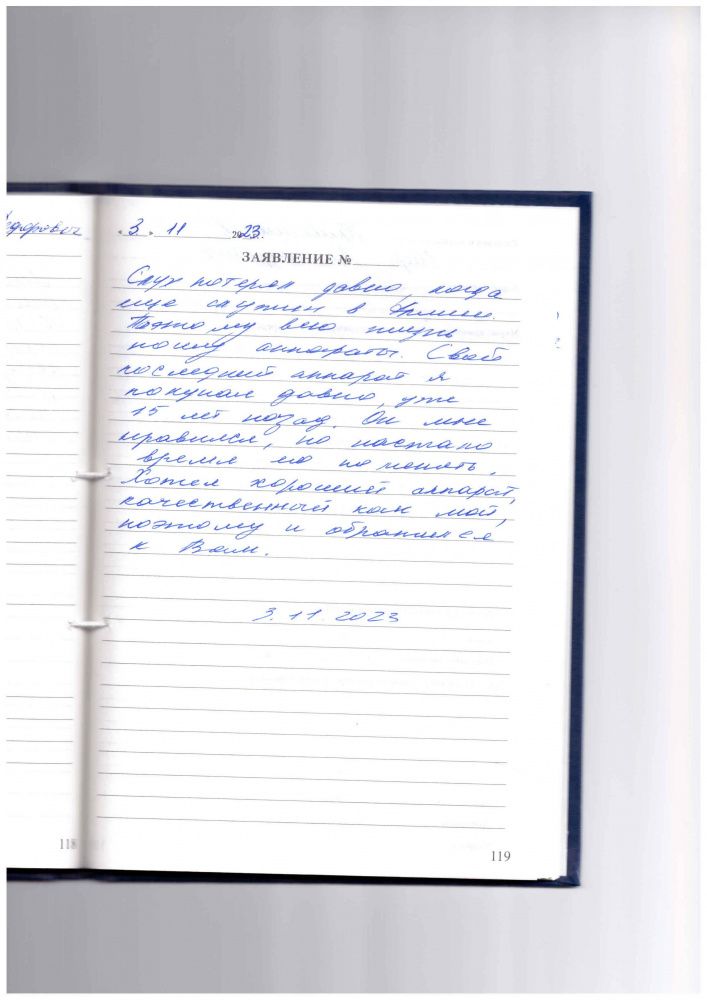 « 3 » 11 2023 г.
ЗАЯВЛЕНИЕ №
Слух потерял давно, когда
еще служил в Армии.
Поэтому всю жизнь
ношу аппараты. Свой
последний аппарат я
покупал давно, уже
15 лет назад. Он мне
нравился, но настало
время его поменять.
Хотел хороший аппарат,
качественный как мой,
поэтому и обратился
к Вам.
3.11.2023
118
119